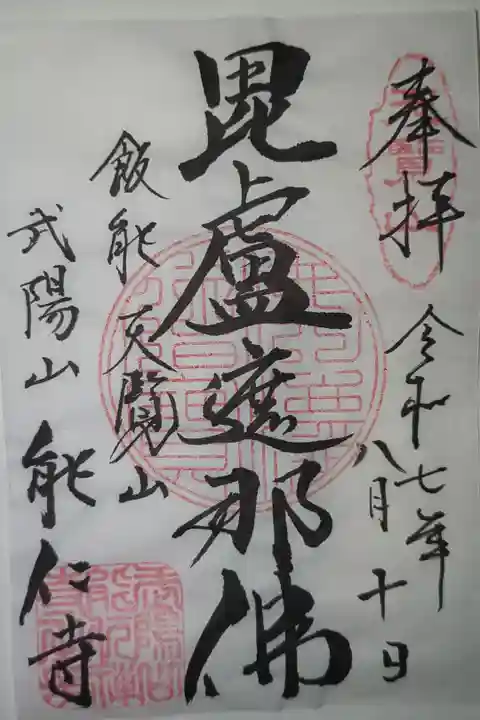 奉拝
令和七年
八月十日
毘盧遮那佛
飯能天覧山
武陽山能仁寺